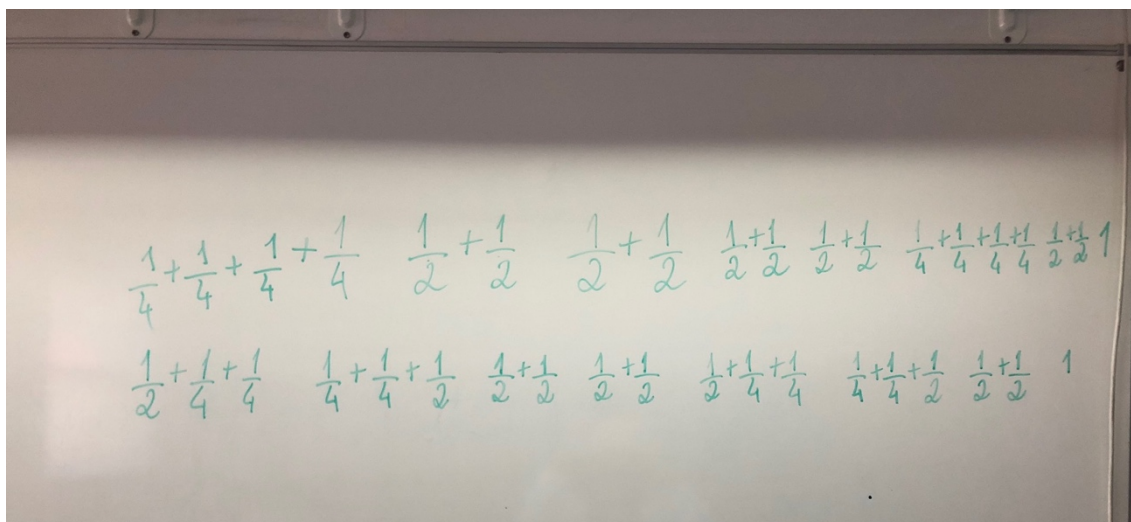 1/4 + 1/4 + 1/4 + 1/4 1/2 + 1/2 1/2 + 1/2 1/2 + 1/2 1/2 + 1/2 1/4 + 1/4 + 1/4 + 1/4 1/2 + 1/2 1
1/2 + 1/4 + 1/4 1/4 + 1/4 + 1/2 1/2 + 1/2 1/2 + 1/2 1/2 + 1/4 + 1/4 1/4 + 1/4 + 1/2 1/2 + 1/2 1